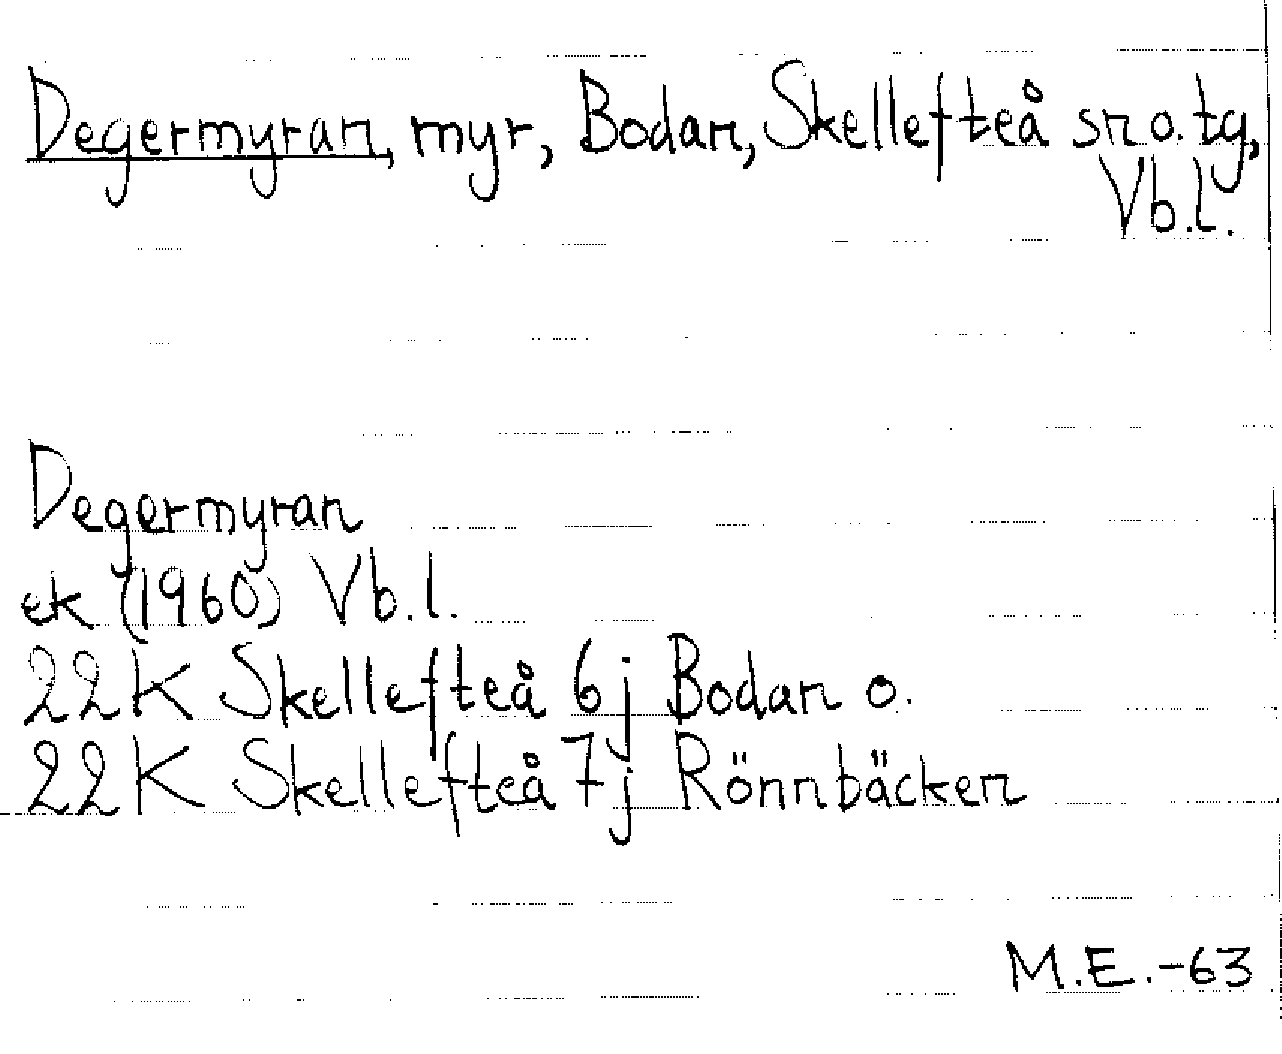 Degermyran, myr, Bodan, Skellefteå sn o. tg,
Vb.l.
Degermyran
ek (1960) Vb.l.
22K Skellefteå 6j Bodan o.
22K Skellefteå 7j Rönnbäcken
M.E.-63